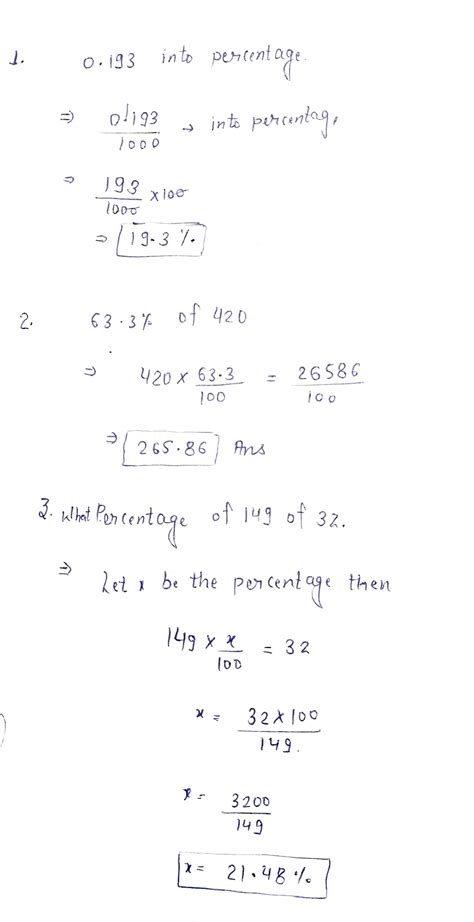 1. 0.193 into percentage.
⇒ 0.193/1000 → into percentage
⇒ 193/1000 × 100
⇒ 19.3 %
2. 63.3% of 420
⇒ 420 × 63.3/100 = 26586/100
⇒ 265.86 Ans
3. What Percentage of 149 of 32.
⇒ Let x be the percentage then
149 × x/100 = 32
x = 32×100/149.
x = 3200/149
x = 21.48 %